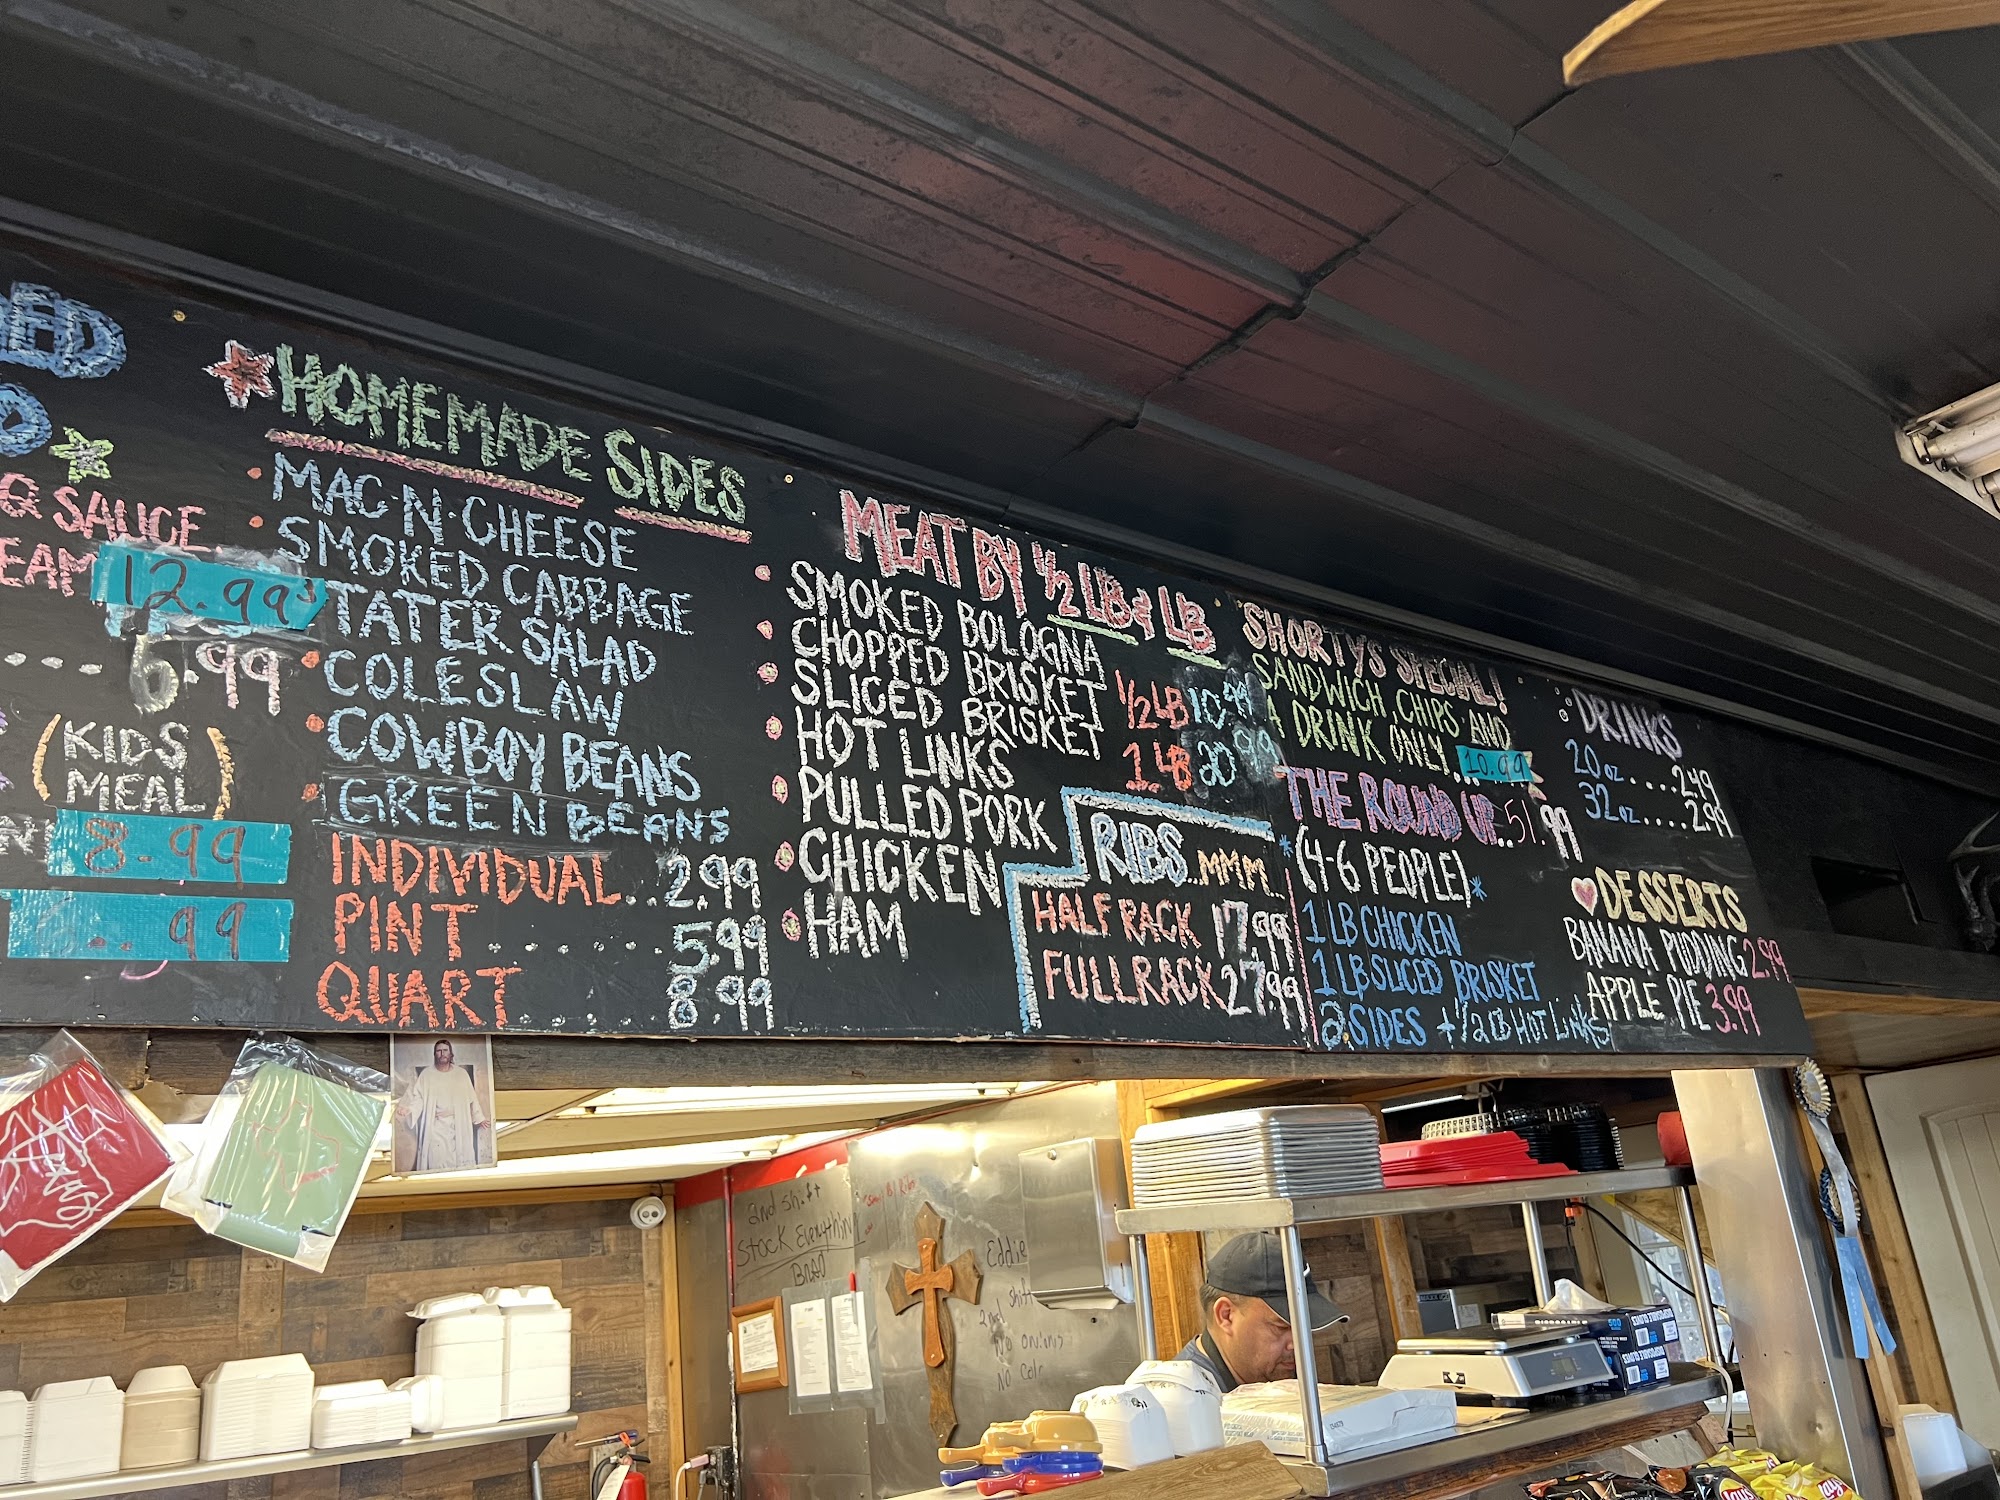 Q SAUCE
12.99
6.99
(KIDS
MEAL)
8.99
.. 99
HOMEMADE SIDES
MAC·N·CHEESE
SMOKED CABBAGE
TATER SALAD
COLESLAW
COWBOY BEANS
GREEN BEANS
INDIVIDUAL..2.99
PINT.......5.99
QUART......8.99
MEAT BY 1/2 LB & LB
SMOKED BOLOGNA
CHOPPED BRISKET
SLICED BRISKET
HOT LINKS
PULLED PORK
CHICKEN
HAM
1/2 LB 10.99
1 LB 20.99
RIBS...MMM..
HALF RACK 17.99
FULL RACK 27.99
SHORTY'S SPECIAL!
SANDWICH, CHIPS AND
A DRINK ONLY...10.99
THE ROUND UP..51.99
*(4-6 PEOPLE)*
1 LB CHICKEN
1 LB SLICED BRISKET
2 SIDES + 1/2 LB HOT LINKS
DRINKS
20 oz....2.49
32 oz....2.99
DESSERTS
BANANA PUDDING 2.99
APPLE PIE 3.99
Texas
2nd shift
STOCK Everything
Eddie
2nd shift
NO ONIONS
Lay's
Lay's